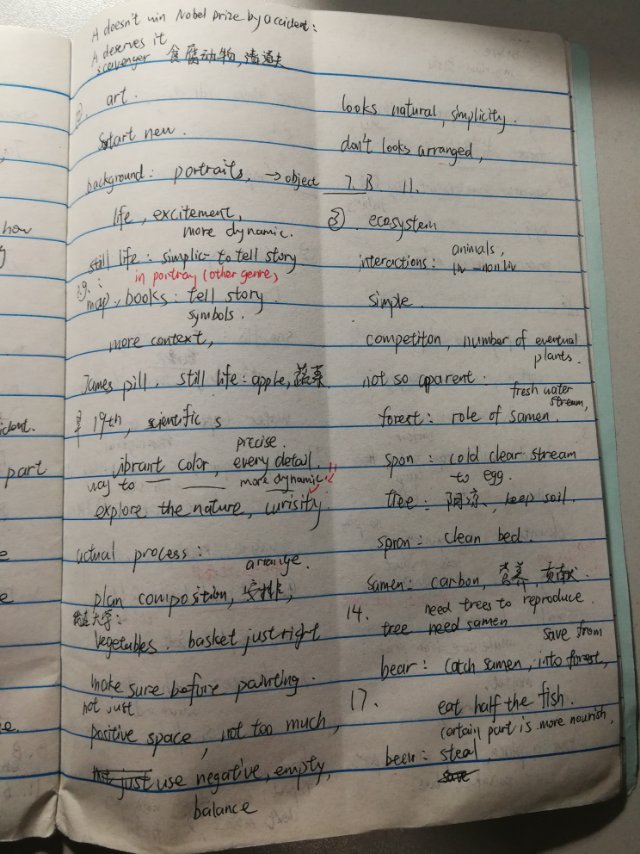 A doesn't win Nobel prize by accident:
A deserves it
scavenger 食腐动物,清道夫
②. art.
Start new.
background: portraits, → object
life, excitement,
more dynamic.
still life: simplic to tell story
in portray (other genre)
e.g.:
map, books: tell story
symbols.
more context,
James pill. still life: apple, 蔬菜
19th, scientific s
precise.
vibrant color, every detail.
way to more dynamic.
explore the nature, curisity
actual process:
arrange.
plan composition, 安排,
vegetables. basket just right
make sure before painting.
not just
positive space, not too much,
just use negative, empty,
balance
looks natural, simplicity.
don't looks arranged,
7. B. 11.
③. ecosystem
animals,
interactions: liv - non liv
simple.
competiton, number of eventual
plants.
not so aparent.
fresh water
stream,
forest: role of samen.
spon: cold clear stream
to egg.
tree: 阴凉, keep soil.
spron: clean bed.
samen: carbon, 营养 贡献.
14. need trees to reproduce.
tree need samen
save from
bear: catch samen, into forest,
17. eat half the fish.
certain part is more nourish,
beer: steal
save